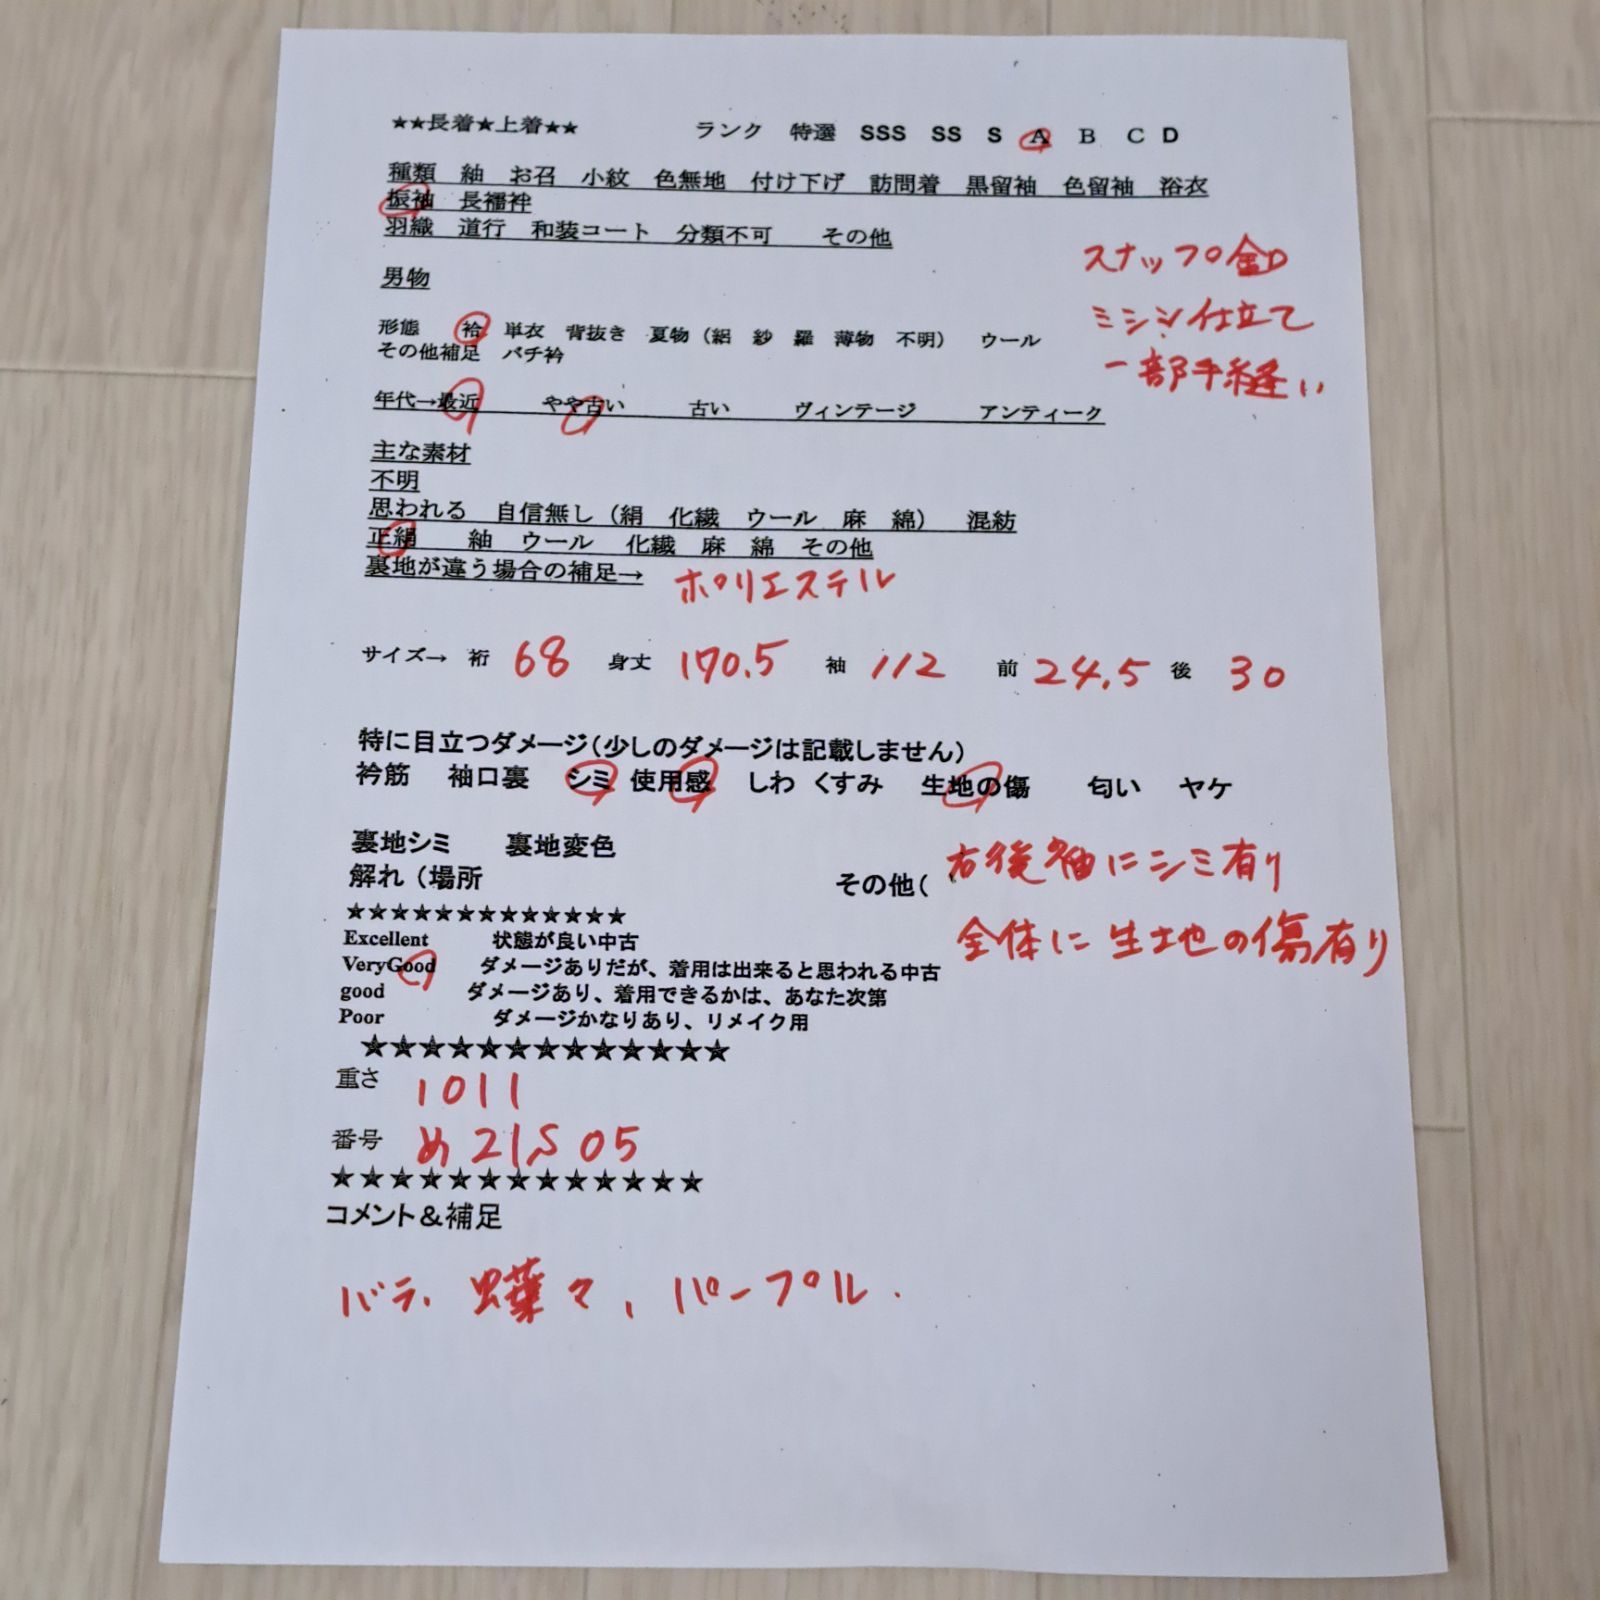 ★★長着★上着★★ ランク 特選 SSS SS S A B C D
種類 紬 お召 小紋 色無地 付け下げ 訪問着 黒留袖 色留袖 浴衣
振袖 長襦袢
羽織 道行 和装コート 分類不可 その他
スナップ釦
ミシン仕立て
一部手縫い
男物
形態 袷 単衣 背抜き 夏物（絽 紗 羅 薄物 不明） ウール
その他補足 バチ衿
年代→最近 やや古い 古い ヴィンテージ アンティーク
主な素材
不明
思われる 自信無し（絹 化繊 ウール 麻 綿） 混紡
正絹 紬 ウール 化繊 麻 綿 その他
裏地が違う場合の補足→ ポリエステル
サイズ→ 裄 68 身丈 170.5 袖 112 前 24.5 後 30
特に目立つダメージ（少しのダメージは記載しません）
衿筋 袖口裏 シミ 使用感 しわ くすみ 生地の傷 匂い ヤケ
裏地シミ 裏地変色
解れ（場所 その他（ 右後袖にシミ有り
全体に生地の傷有り
★★★★★★★★★★★★★
Excellent 状態が良い中古
VeryGood ダメージありだが、着用は出来ると思われる中古
good ダメージあり、着用できるかは、あなた次第
Poor ダメージかなりあり、リメイク用
★★★★★★★★★★★★★
重さ 1011
番号 め21S05
★★★★★★★★★★★★★
コメント＆補足
バラ、蝶々、パープル.